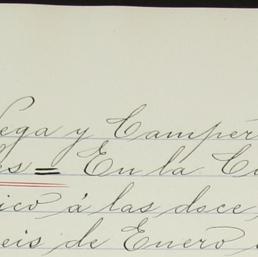 Vega y Campér
es = En la Ci
ico á las doce
eis de Enero